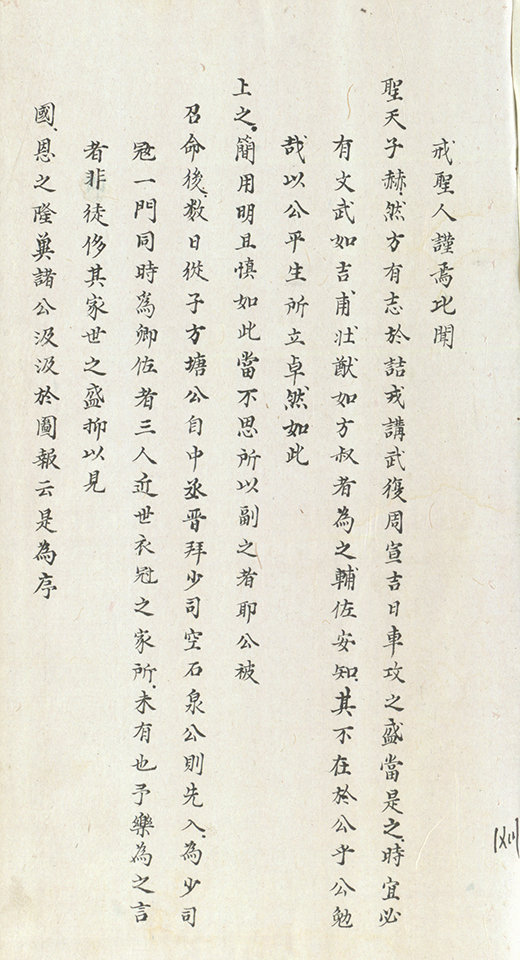 戒聖人謹焉此聞
聖天子赫然方有志於詰戎講武復周宣吉日車攻之盛當是之時宜必
有文武如吉甫壯猷如方叔者為之輔佐安知其不在於公乎公勉
哉以公平生所立卓然如此
上之簡用明且慎如此當不思所以副之者耶公被
召命後數日從子方塘公自中丞晋拜少司空石泉公則先入為少司
冦一門同時為卿佐者三人近世衣冠之家所未有也予樂為之言
者非徒侈其家世之盛抑以見
國恩之隆冀諸公汲汲於圖報云是為序